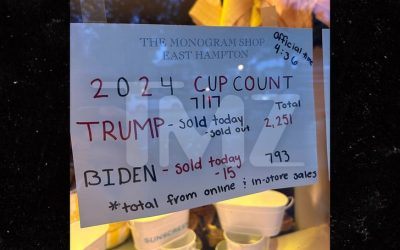 THE MONOGRAM SHOP
EAST HAMPTON
Official time
4:36
2024 CUP COUNT
7/17
Total
TRUMP - sold today 2,251
- sold out
BIDEN - sold today 793
- 15
*total from online & in-store sales
TMZ
SUNSCREEN